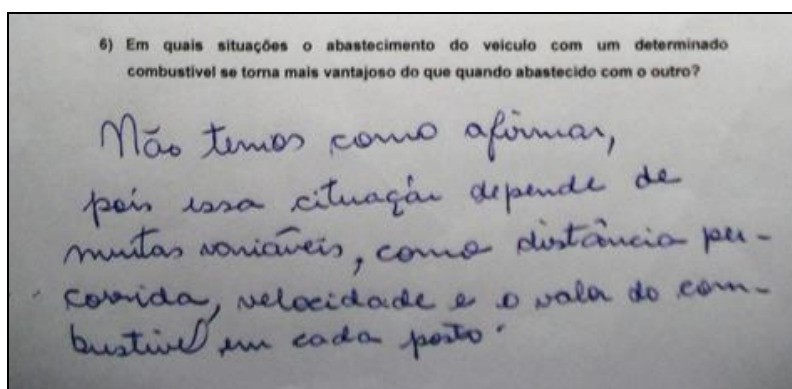 6) Em quais situações o abastecimento do veiculo com um determinado
combustivel se torna mais vantajoso do que quando abastecido com o outro?
Não temos como afirmar,
pois essa cituação depende de
muitas variáveis, como distância per-
corrida, velocidade e o valor do com-
bustivel em cada posto.